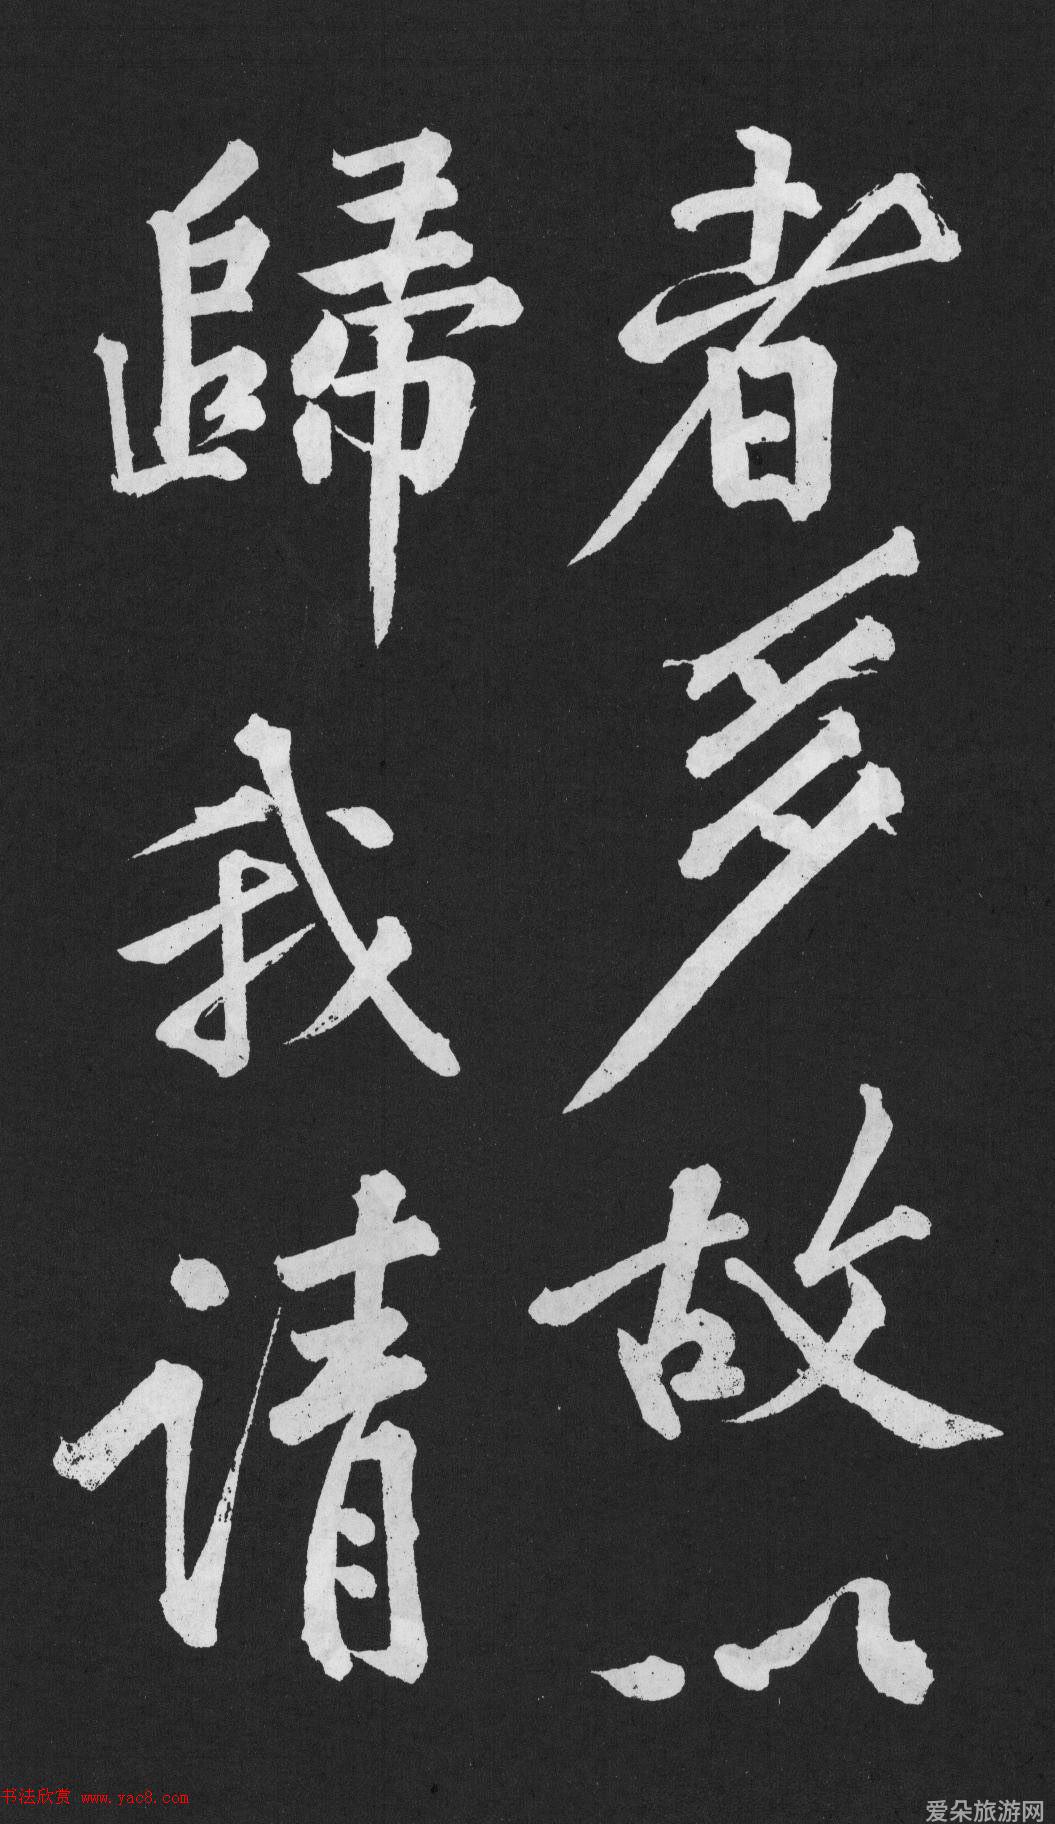 者多故以
歸我请
书法欣赏 www.yac8.com
爱朵旅游网